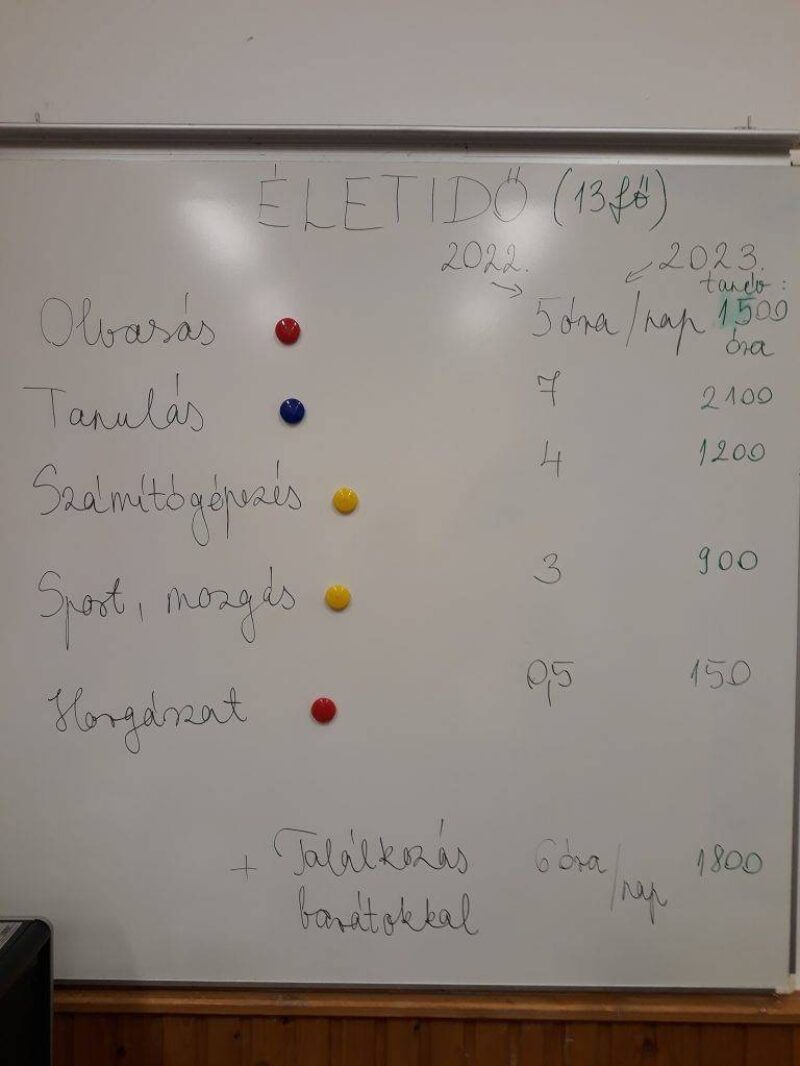 ÉLETIDŐ (13 fő)
2022. 2023.
Olvasás 5 óra/nap 1500
óra
Tanulás 7 2100
Számítógépezés 4 1200
Sport, mozgás 3 900
Horgászat 0,5 150
+ Találkozás 6 óra/nap 1800
barátokkal